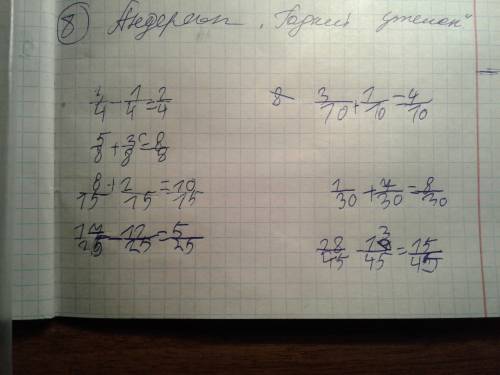 8 Андерсен „Гадкий утенок“
3/4 - 1/4 = 2/4
5/8 + 3/8 = 8/8
8/15 + 2/15 = 10/15
17/25 - 12/25 = 5/25
8 3/10 + 1/10 = 4/10
1/30 + 7/30 = 8/30
28/45 - 13/45 = 15/45